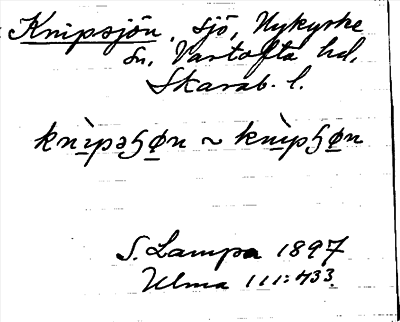 Knipsjön, sjö, Nykyrke
sn. Vartofta hd.
Skarab. l.
knìpəɧøn ~ knìpɧøn
S. Lampa 1897
Ulma 111:433.